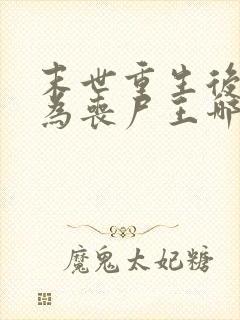 末世重生後
為喪尸王哪
魔鬼太妃糖